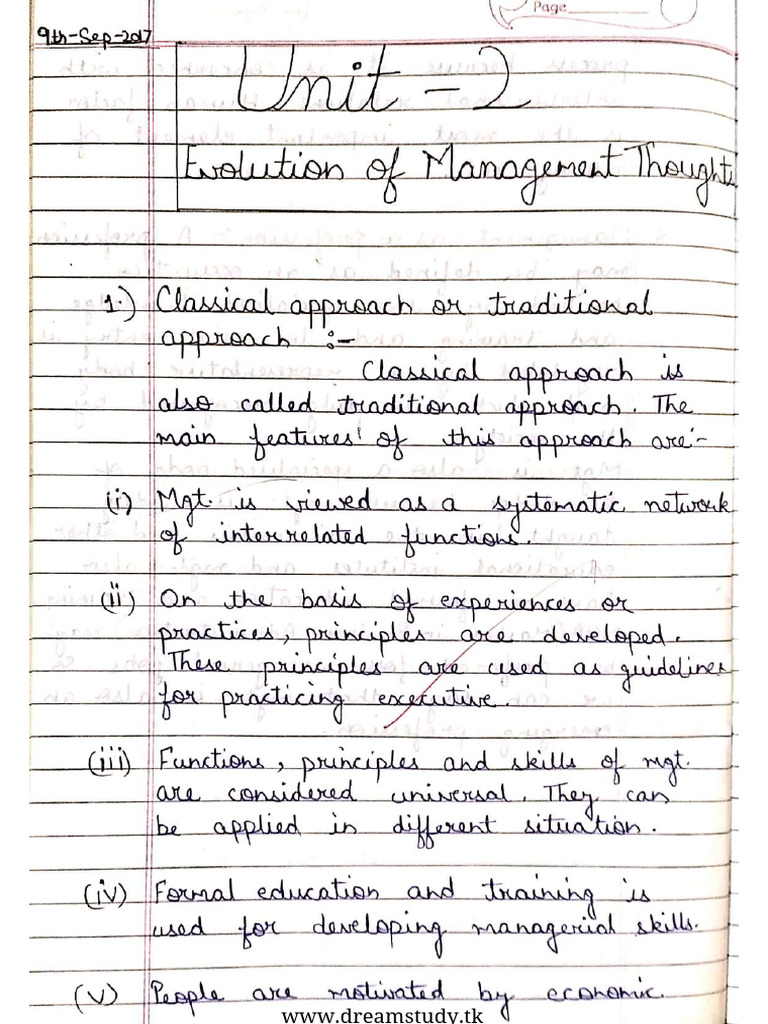 Page
9th-Sep-2017
Unit - 2
Evolution of Management Thoughts
1.) Classical approach or traditional
approach :-
Classical approach is
also called traditional approach. The
main features of this approach are:-
(i) Mgt. is viewed as a systematic network
of interrelated functions.
(ii) On the basis of experiences or
practices, principles are developed.
These principles are used as guidelines
for practicing executive.
(iii) Functions, principles and skills of mgt.
are considered universal. They can
be applied in different situation.
(iv) Formal education and training is
used for developing managerial skills.
(v) People are motivated by economic
www.dreamstudy.tk